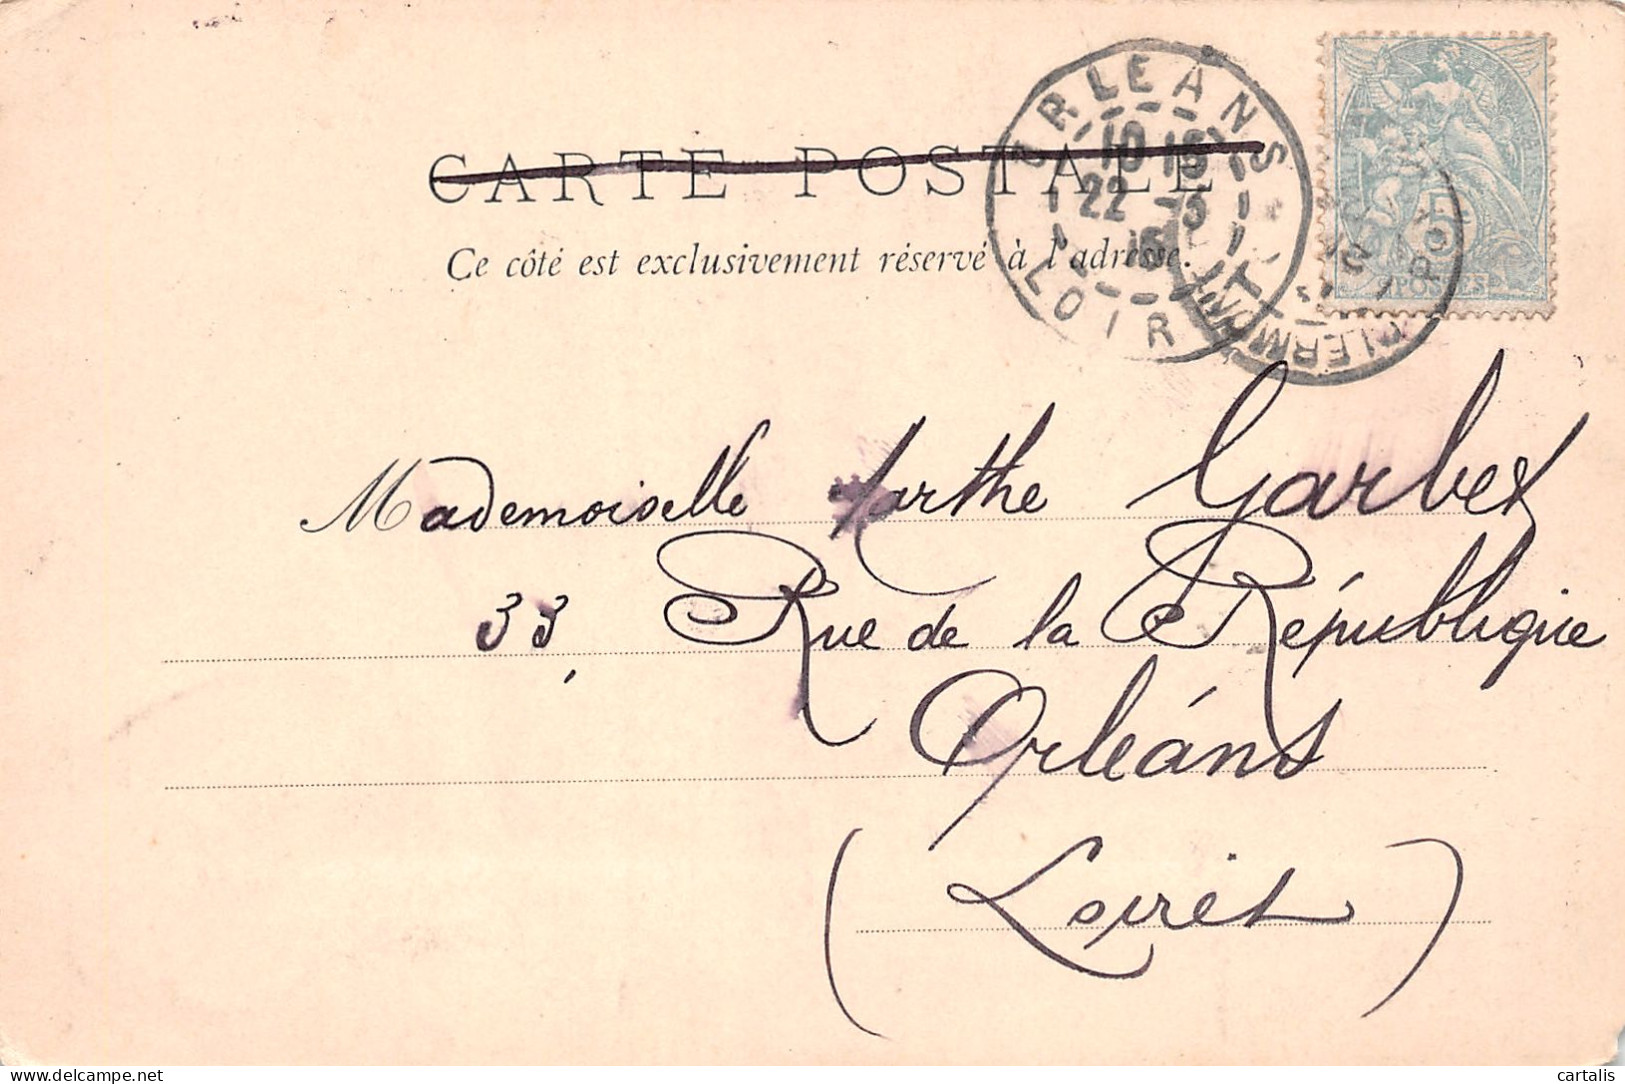 CARTE POSTALE
Ce côté est exclusivement réservé à l'adresse.
ORLEANS
10 15
22 -5
LOIRET
5
POSTES
Mademoiselle Marthe Garbet
33, Rue de la République
Orléans
(Loiret)
cartalis